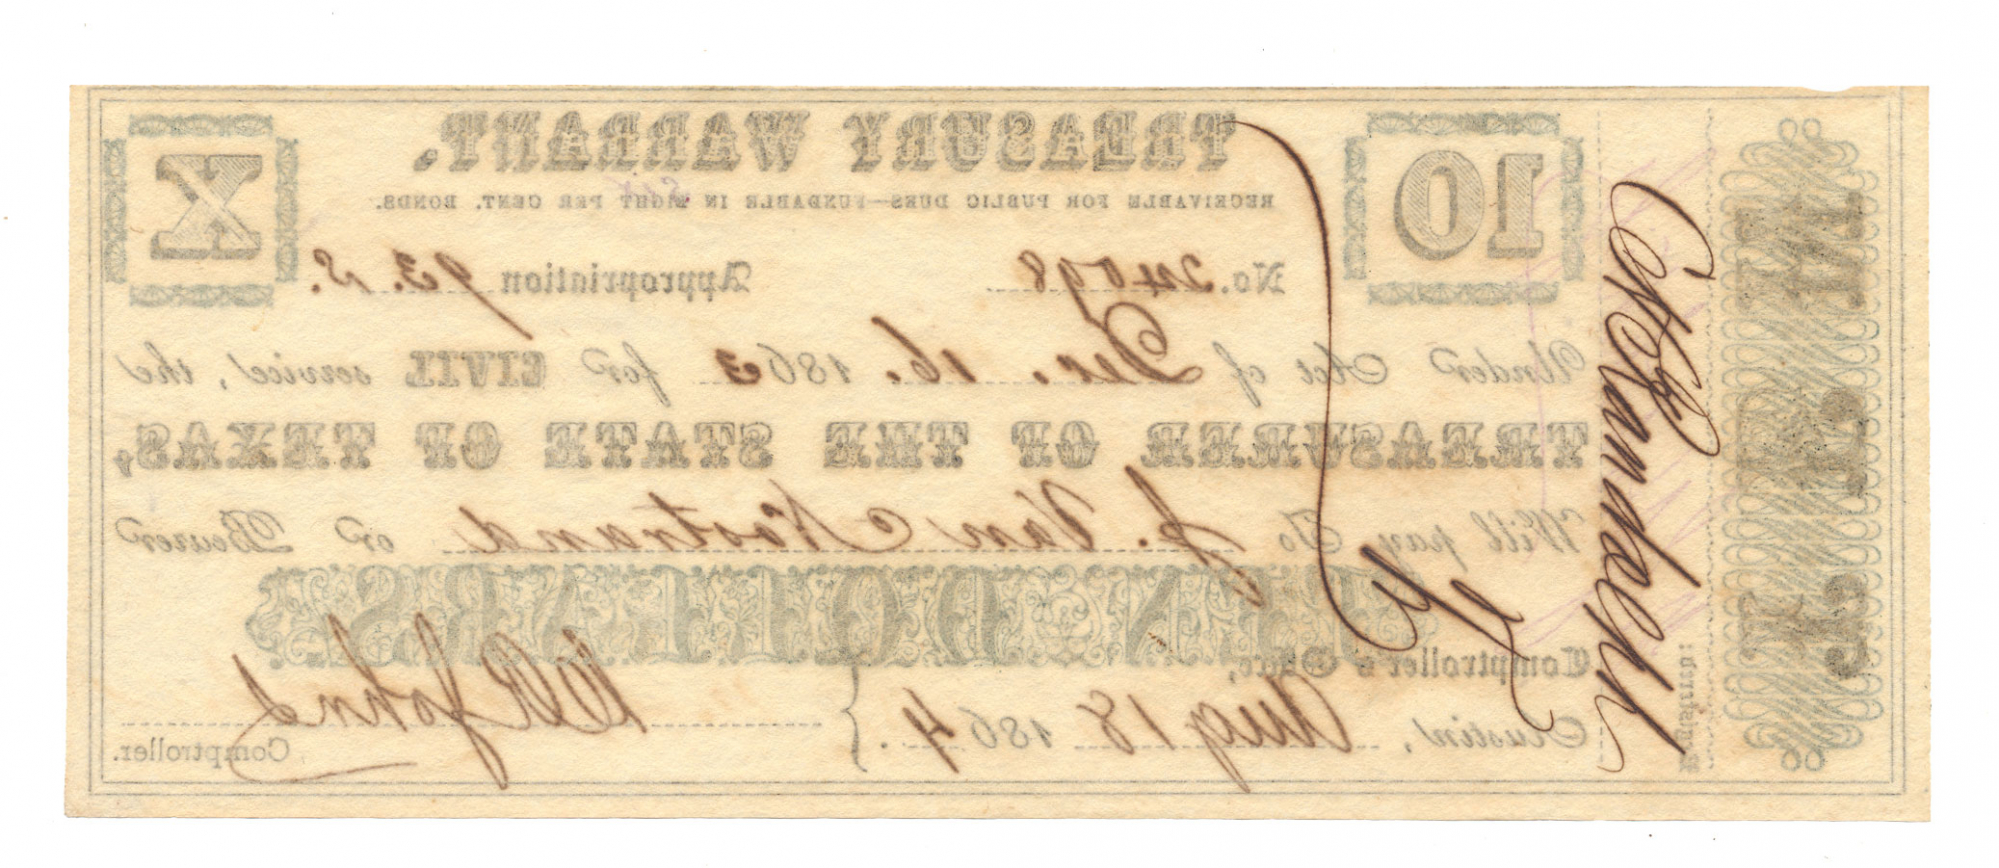 TREASURY WARRANT.
10
X
RECEIVABLE FOR PUBLIC DUES—FUNDABLE IN EIGHT PER CENT. BONDS.
Six
No. 24098 Appropriation 93. S.
Under Act of Dec. 16. 1863 for CIVIL service, the
TREASURER OF THE STATE OF TEXAS,
Will pay To J. Van Nostrand or Bearer
TEN DOLLARS
Comptroller's Office,
Austin, Aug 18 1864.
W R Johns
Comptroller.
Registered:
C H Randolph